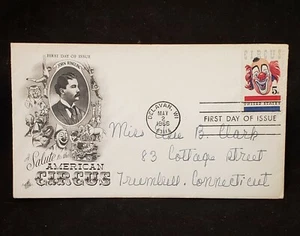 FIRST DAY OF ISSUE
CIRCUS
5c
UNITED STATES
DELAVAN, WI
MAY
2
1966
FIRST DAY OF ISSUE
A Salute to the
AMERICAN
CIRCUS
Miss B. Clark
83 Cottage Street
Trumbull, Connecticut